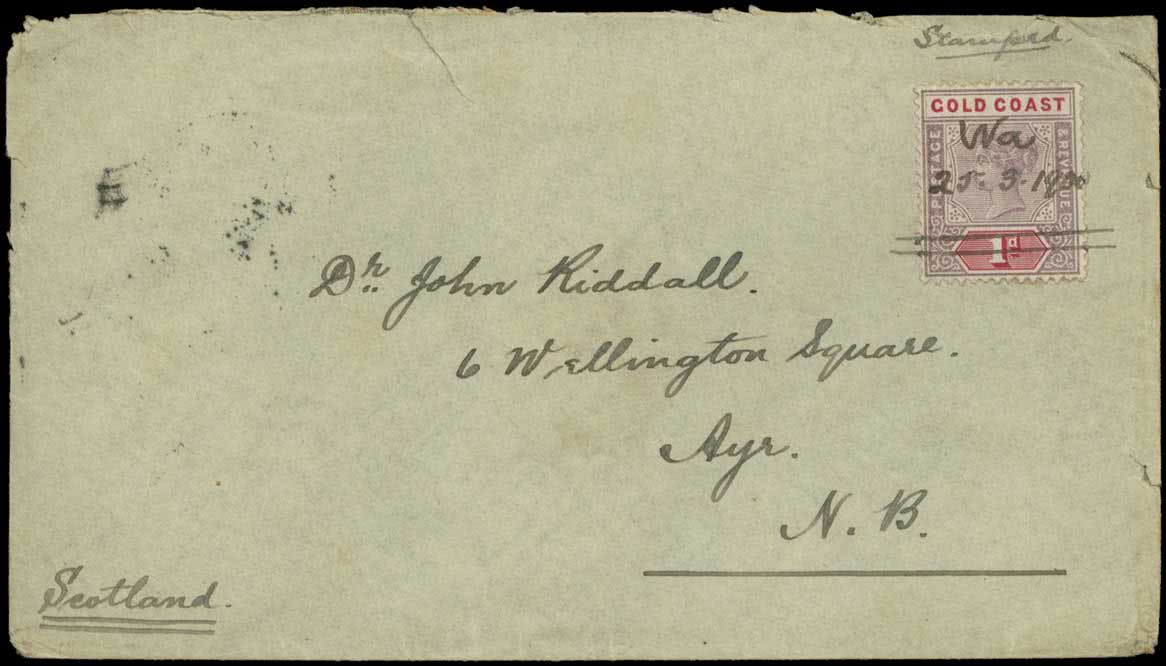 Stamford
GOLD COAST
POSTAGE & REVENUE
Wa
25. 3. 1900
1d
Dr. John Riddall.
6 Wellington Square.
Ayr.
N. B.
Scotland.